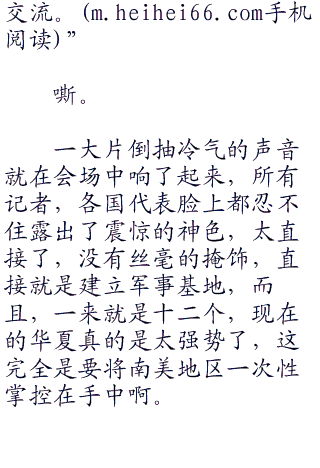 交流。(m.heihei66.com手机
阅读)”
嘶。
一大片倒抽冷气的声音
就在会场中响了起来，所有
记者，各国代表脸上都忍不
住露出了震惊的神色，太直
接了，没有丝毫的掩饰，直
接就是建立军事基地，而
且，一来就是十二个，现在
的华夏真的是太强势了，这
完全是要将南美地区一次性
掌控在手中啊。